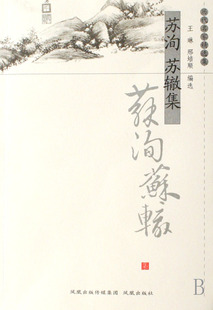 历代名家精选集
苏洵 苏辙集
王 琳 邢培顺 编选
蘇洵蘇轍
凤凰出版传媒集团 凤凰出版社
B